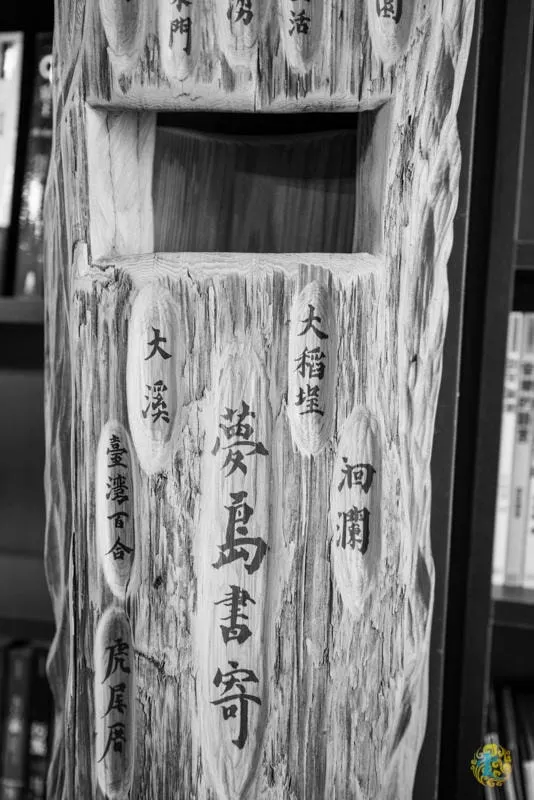 門
活
大稻埕
大溪
洄瀾
夢島書寄
臺灣百合
虎尾厝